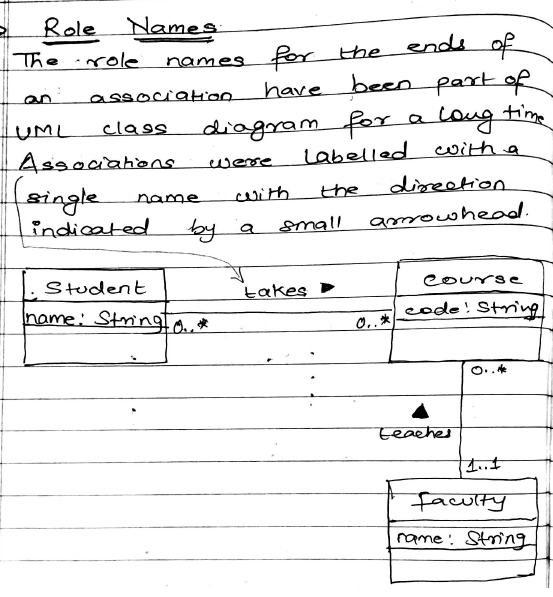 Role Names
The role names for the ends of
an association have been part of
UML class diagram for a long time
Associations were labelled with a
single name with the direction
indicated by a small arrowhead.
Student takes ▶ course
name: String 0..* 0..* code: String
0..*
▲
teaches
1..1
faculty
name: String